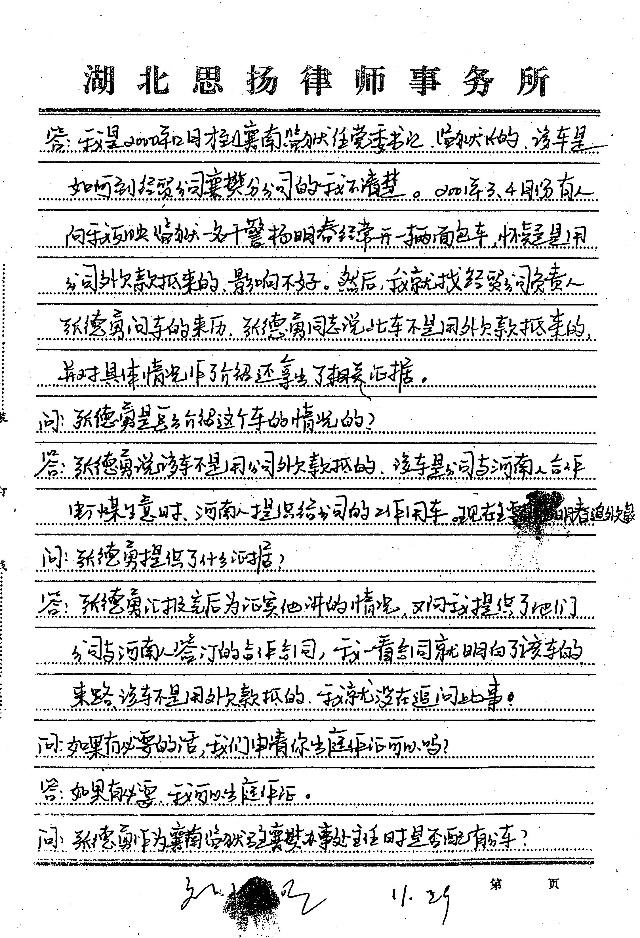 湖北思扬律师事务所
答：我是2000年12月才担任襄南监狱任党委书记、监狱长的，该车是
如何到经贸公司襄樊分公司的我不清楚。2001年3、4月份有人
向我反映监狱一名干警杨明春经常开一辆面包车，怀疑是用
公司外欠款抵来的，影响不好。然后，我就找经贸公司负责人
张德勇问车的来历，张德勇同志说此车不是用外欠款抵来的，
并对具体情况作了介绍还拿出了相关证据。
问：张德勇是怎么介绍这个车的情况的？
答：张德勇说该车不是用公司外欠款抵的，该车是公司与河南人合作
做煤生意时，河南人提供给公司的工作用车。现在主要 明春追外欠款
问：张德勇提供了什么证据？
答：张德勇汇报完后为证实他讲的情况，又向我提供了他们
公司与河南人签订的合作合同，我一看合同就明白了该车的
来路，该车不是用外欠款抵的，我就没在追问此事。
问：如果有必要的话，我们申请你出庭作证可以吗？
答：如果有必要，我可以出庭作证。
问：张德勇作为襄南监狱驻襄樊办事处主任时是否配有公车？
11.29
第 页